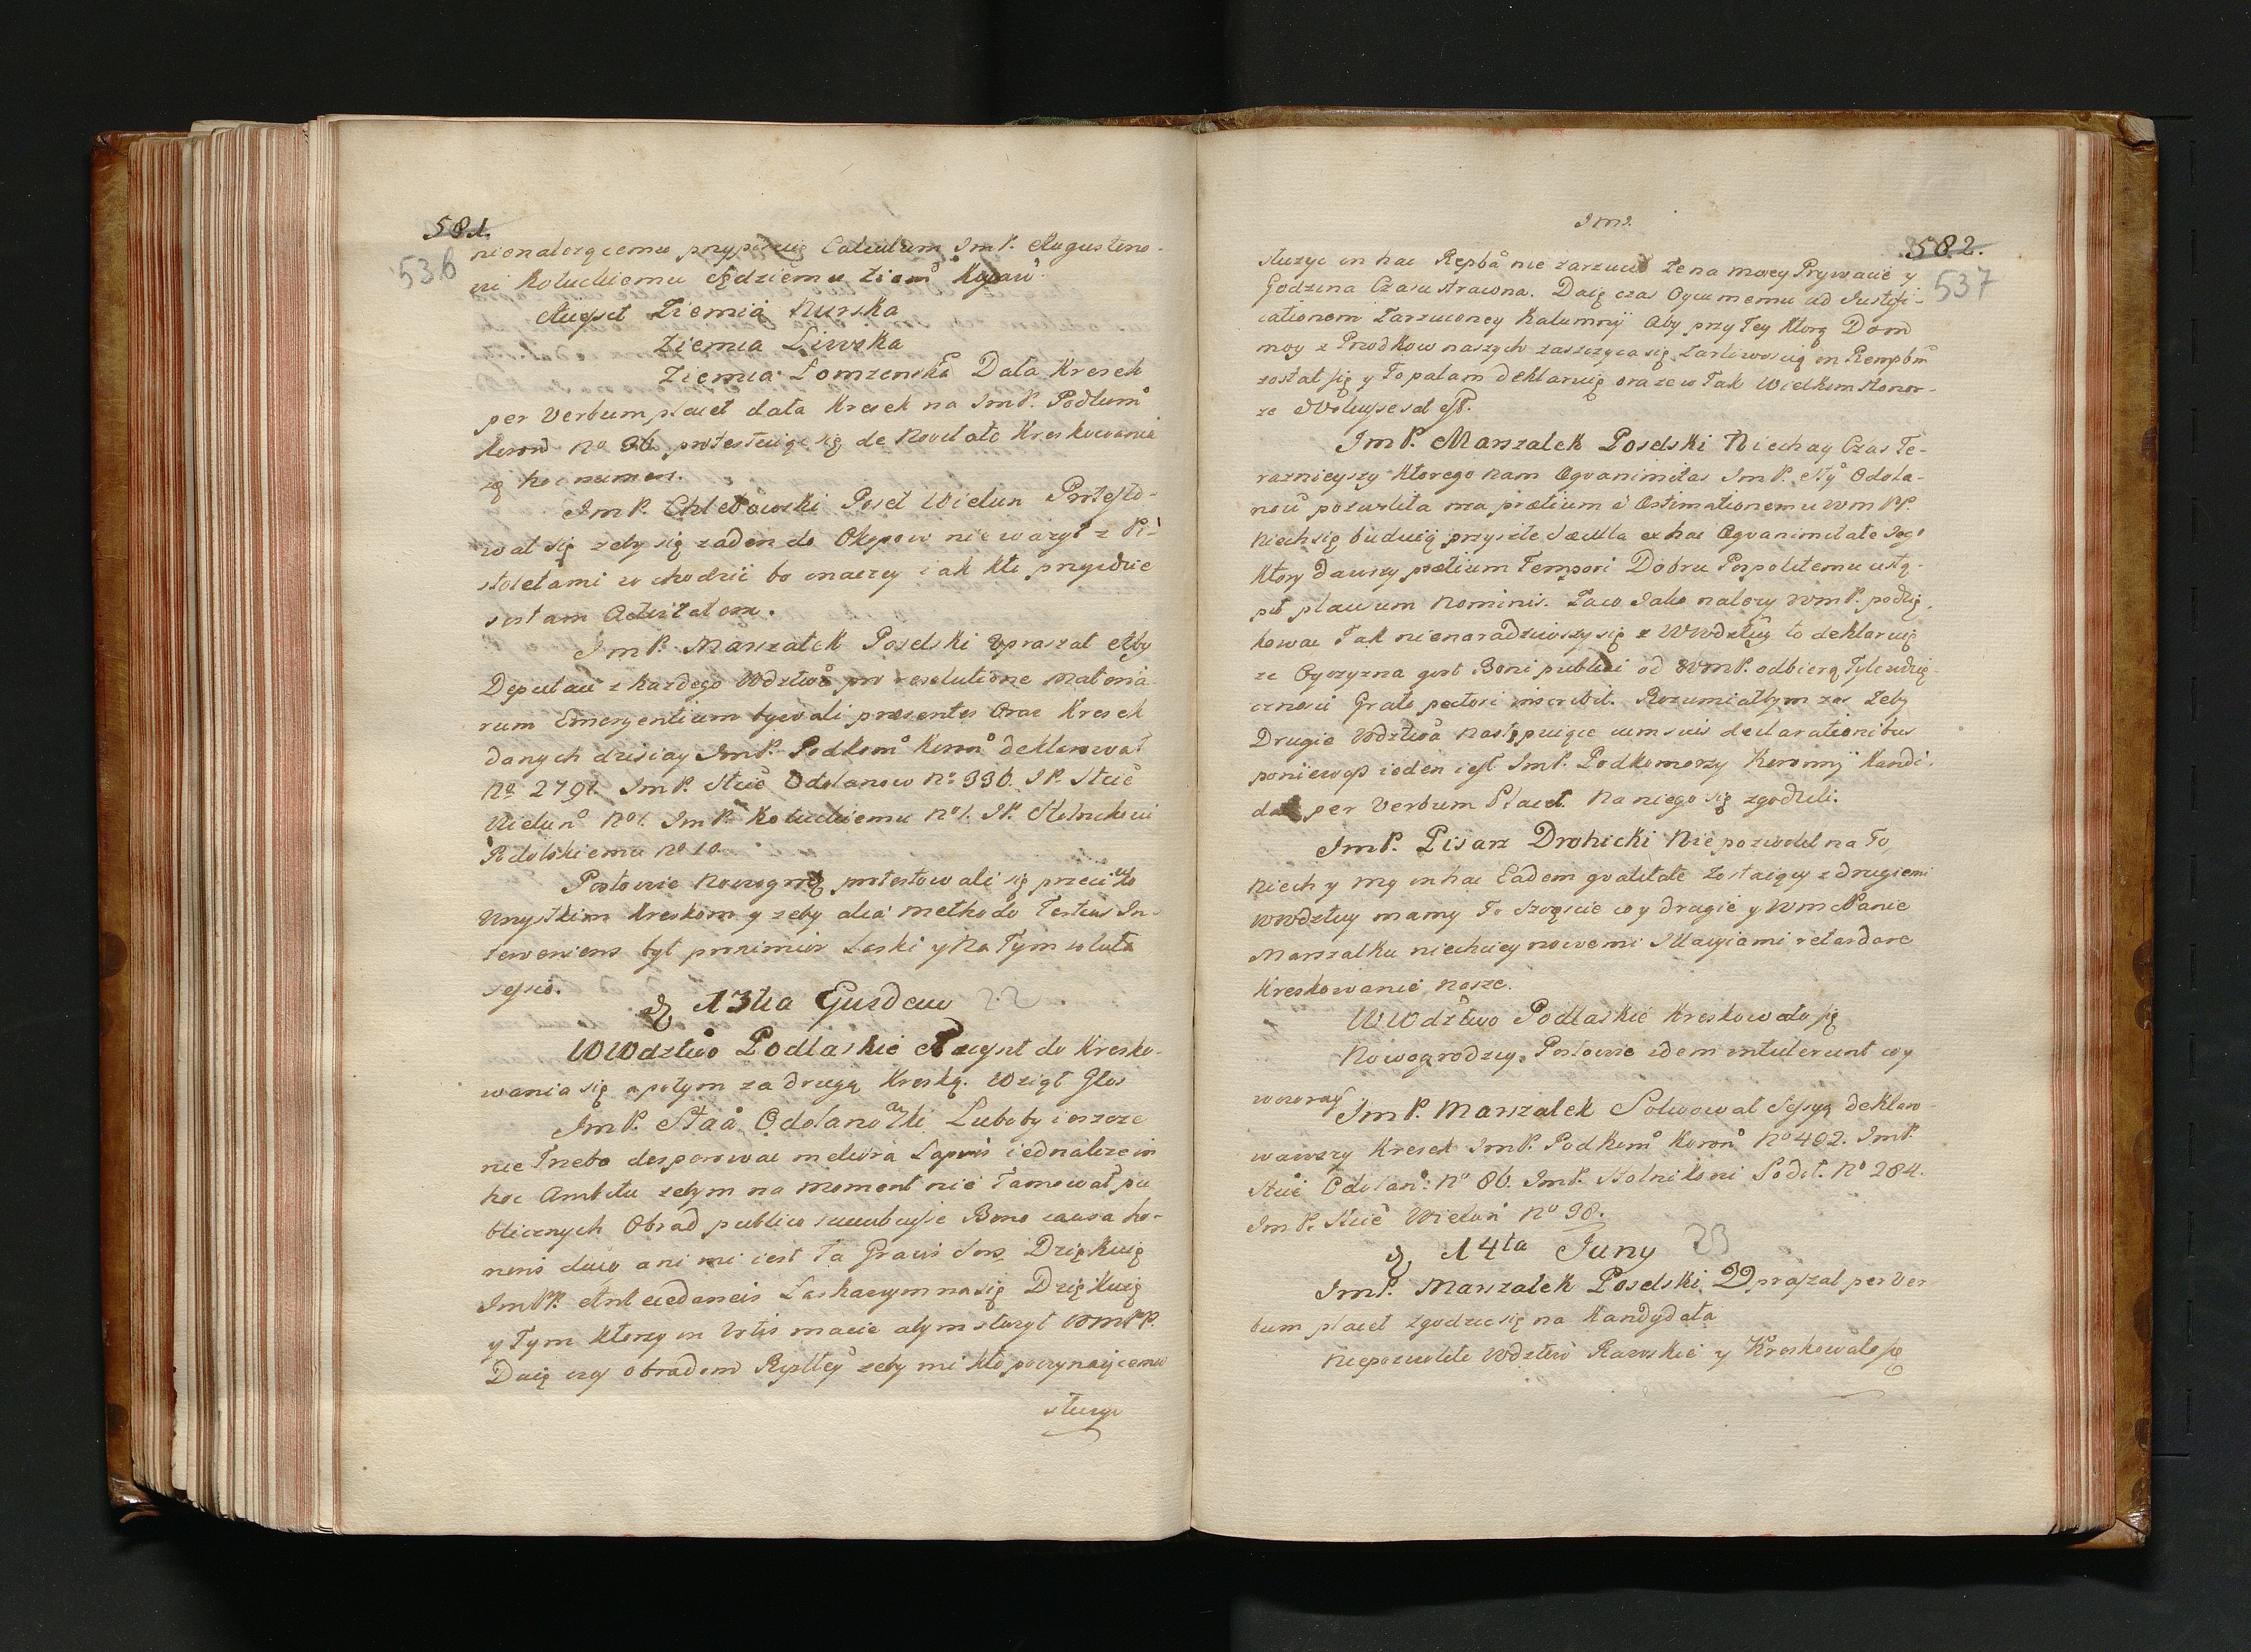 581.
536
nienalezącemu przypisuię Calculum ImP. Augustino-
wi Kołuckiemu Sędziemu Ziem Kujaw
Ziemia Nurska
Ziemia Liwska
Ziemia Łomzenska Dała Kresek
per Verbum placet data Kresek na ImP. Podkom
Koron No 36 protestuiąc się de Novitate Kreskowania
hoc numen.
ImP. Chlebowski Poseł Wielun Protesto-
wał się zeby się zaden do Okopow nie wazył z Pi-
stoletami wchodzić bo inaczey iak kto przyidzie
ImP. Marszałek Poselski Vpraszał Aby
Deputaci z kazdego Wdztwa pro resolutione materia-
rum Emergentium bywali præsentes Orac Kresek
danych dzisiay ImP. Podkom Koron deklarował
No 2791 ImP. Stcie Odolanow No 336. IP. Stcie
Wielun No 1. ImP. Kołuckiemu No 1. IP. Stolnikowi
Podolskiemu No 10.
Posłowie Nowogrodz protestowali się przeciwko
Wszystkim Kreskom y zeby alia methodo Tertius In-
terveniens był Laski y Na Tym soluta
sessio.
D 13tia Eiusdem 22
WWdztwo Podlaskie do Kresko-
wania się a potym za drugą Kreskę. Wziął Głos
ImP. Staa Odolanowski Luboby ieszcze
nie Trzeba desperowac meliora iednakze in
hoc Ambitu zebym na moment nie Tamował pu
blicznych Obrad publico succubuisse Bono causa ho-
noris duco ani mi iest Ta Gravis Sors Dziękuię
ImPP. Antecedaneis Łaskawym na się Dziękuię
y Tym Ktorzy in Votis macie abym słuzył WmPP.
Daię czas obradom Rzpltey zeby mi kto poczynaiącemu
słuzyc
Imś.
582.
537
słuzyc in hac Repba nie zarzucił Ze na moiey Prywacie y
Godzina Czasu strawna. Daię czas Oycu memu ad Justifi-
cationem Zarzuconey Kalumnÿ Aby przy Tey Ktorą Dom
moy z Przodkow naszych zaszczyca się Zarliwoscią in Rempbm
został się y To palam deklaruię oraz ze w Tak Wielkim Honor-
ze Voluisse sat est.
ImP. Marszałek Poselski Niechay Czas Te-
raznieyszy Ktorego nam Æqvanimitas ImP. Sty Odola-
now pozwoliła ma prætium & Æstimationem u WmPP.
Niech się buduią przyszłe Sæcula ex hac Æqvanimitate Jego
Ktory dawszy prætium Tempori Dobru Pospolitemu ustą-
pił plausum Nominis. Zaco Jako nalezy WmP. podzię-
kowac Tak nienaradziwszy się z WWdztwy to deklaruię
ze Oyczyzna gust Boni publici od WmP. odbierą Tyle wdzię-
cznosci Grato pectori inscribit. Rozumiałbym zas Zeby
Drugie Wdztwa Następuiące cum suis declarationibus
poniewasz ieden iest ImP. Podkomorzy Koronny Kandi-
dat per Verbum Placet Na niego się zgodzili.
ImP. Pisarz Drohicki Nie pozwolił na To,
Niech y my in hac Eadem qvalitate Zostaiący z drugiemi
WWdztwy mamy To Szczęscie co y drugie y Wmc Panie
Marszałku niechciey nowemi Illacyiami retardare
Kreskowanie Nasze.
WWdztwo Podlaskie Kreskowało się
Nowogrodzcy Posłowie idem intulerunt co y
wczoray
ImP. Marszałek Solwował Sessyą deklaro-
wawszy Kresek ImP. Podkom Koron No 402. ImP.
Stcie Odolan. No 86. ImP. Stolnikowi Podol. No 284.
ImP. Stcie Wielun No 98.
D 14ta Juny 23
ImP. Marszałek Poselski Vpraszał per Ver
bum placet zgodzic się na Kandydata
Niepozwoliło Wdztwo Rawskie y Kreskowało się